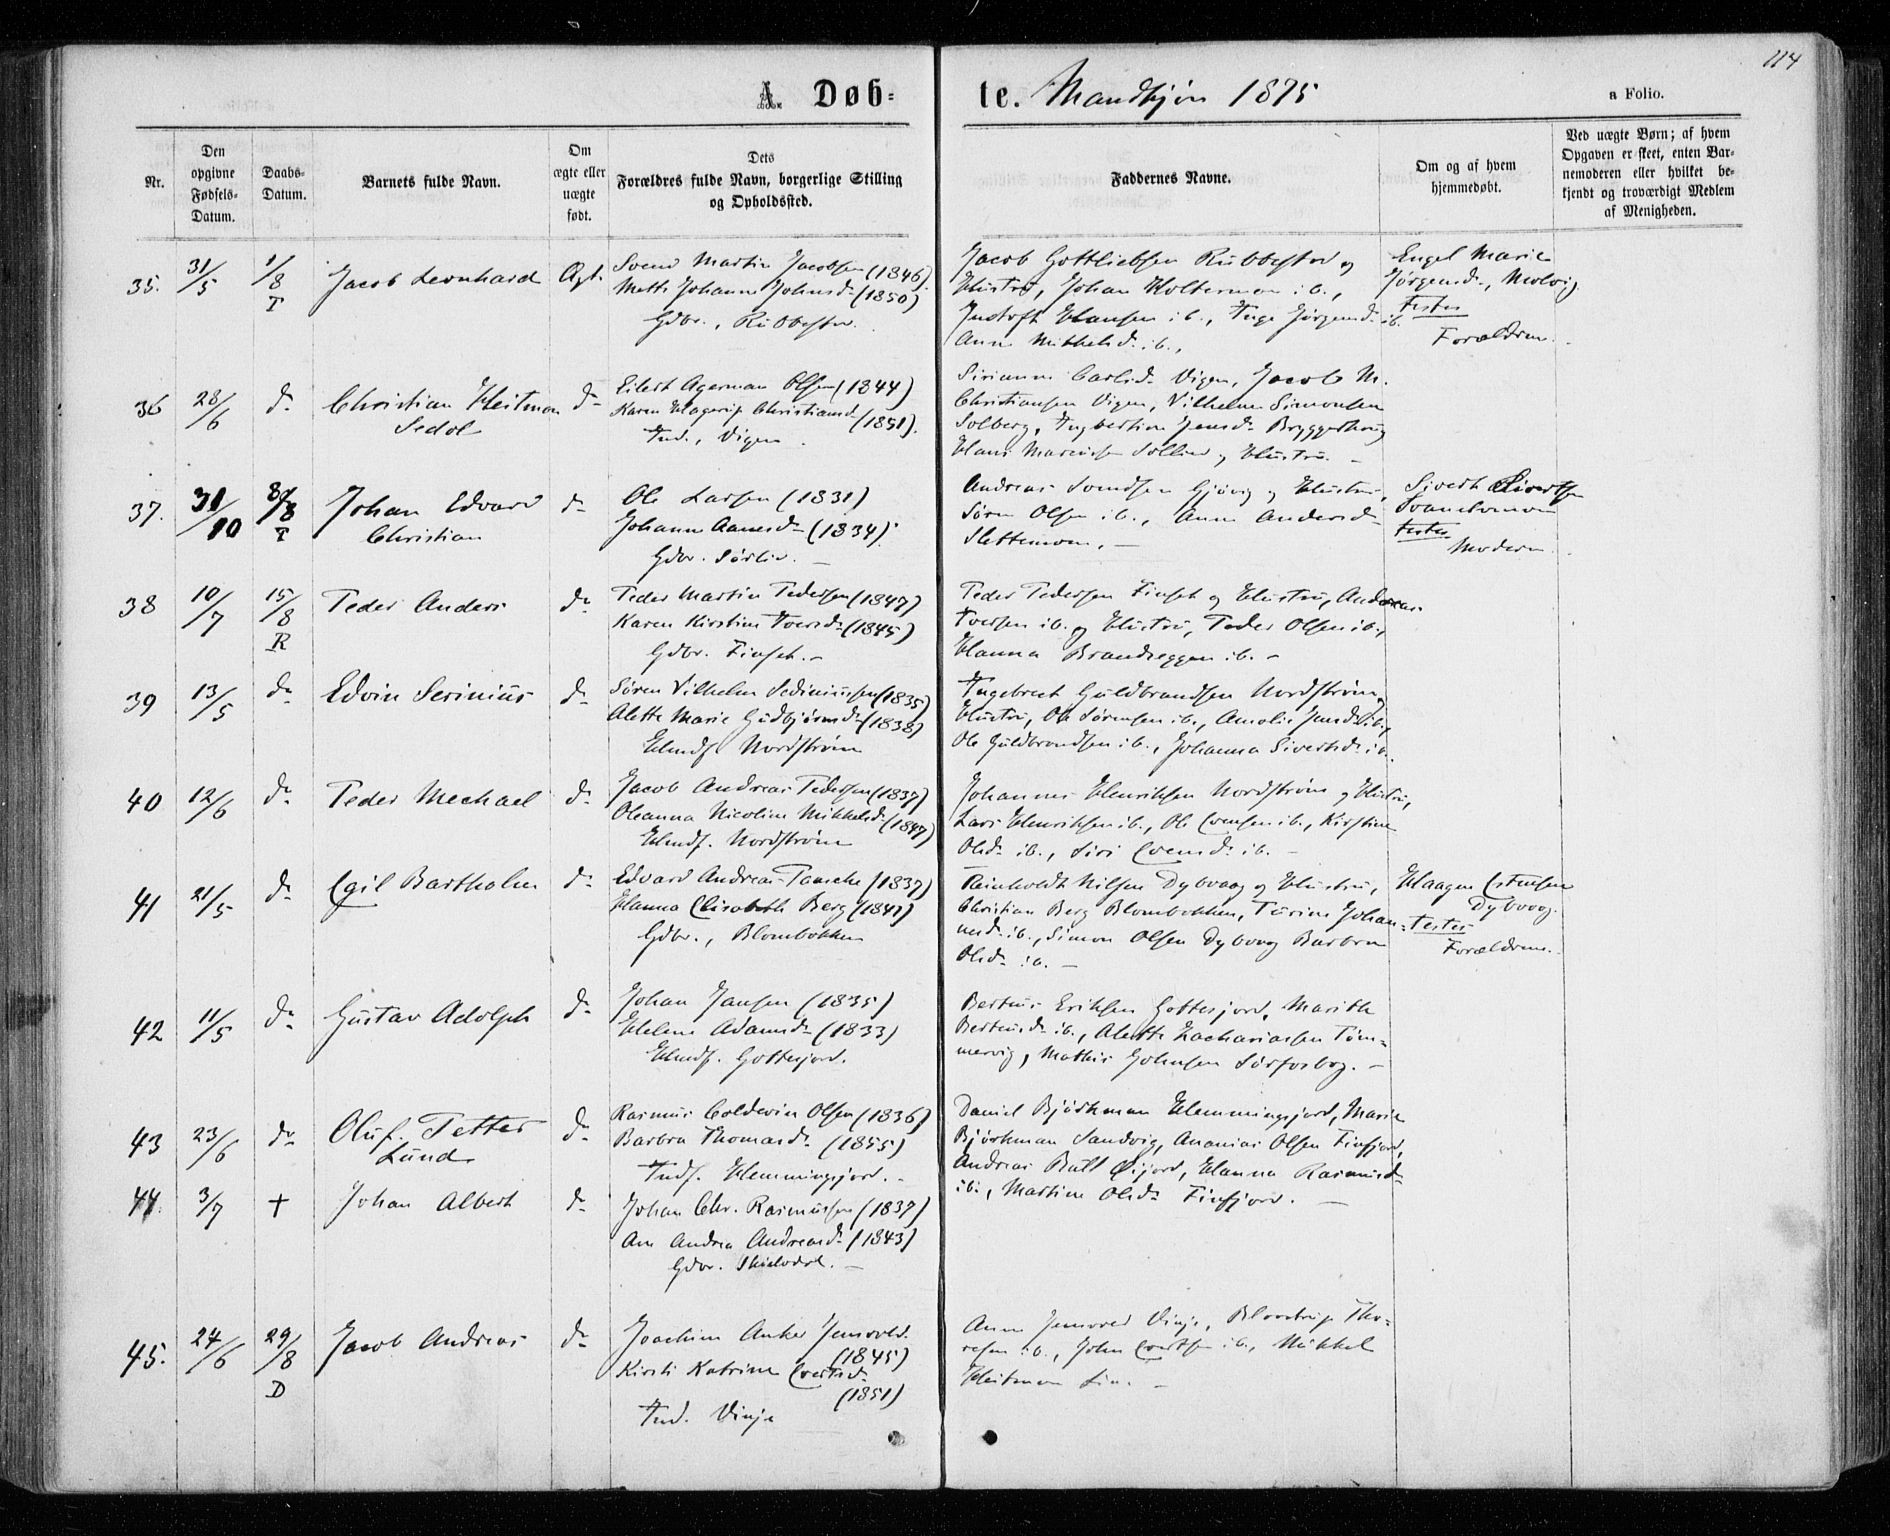 114
A Døb-
te. Mandkjøn 1875
a Folio.
Nr.
Den opgivne Fødsels-Datum.
Daabs-Datum.
Barnets fulde Navn.
Om ægte eller uægte født.
Dets Forældres fulde Navn, borgerlige Stilling og Opholdssted.
Faddernes Navne.
Om og af hvem hjemmedøbt.
Ved uægte Børn; af hvem Opgaven er skeet, enten Barnemoderen eller hvilket bekjendt og troværdigt Medlem af Menigheden.
35. 31/5 1/8 T Jacob Leonhard Ægt.
Svend Martin Jacobsen (1846)
Mette Johanna Johnsd. (1850)
Gdbr.,
Jacob Gottliebsen og
Hustru, Johan Holterman ib.,
Hansen ib., Inge Jørgensd. ib.
Anne Mikkelsd. ib.,
Engel Marie
Jørgensd., Molvig
Testes
Forældrene.
36 28/6 do Christian Heitman do
Sedol
Eilert Agerman Olsen (1844)
Karen Hagerup Christiansd. (1851).
Ind., Vigen.
Sirianne Carlsd. Vigen, Jacob M.
Christiansen Vigen, Vilhelm Simonsen
Solberg, Ingbertine Jensd. Bryggerhoug
Hans Marcussen Sollien og Hustru. -
37. 31/10 8/8 T Johan Edvard do
Christian
Ole Larsen (1831)
Johanna Aanesd. (1834).
Gdbr. Sørlie. -
Andreas Svendsen Gjøvig og Hustru,
Søren Olsen ib., Anne Andersd.
Slettemoen. -
Sivert Sivertsen
Testes
Moderen.
38 10/7 15/8 R Peder Anders do
Peder Martin Pedersen (1847)
Karen Kirstine Iversd. (1845)
Gdbr. Finset. -
Peder Pedersen Finset og Hustru, Andreas
Iversen ib. og Hustru, Peder Olsen ib.,
Hanna Brandseggen ib. -
39 13/5 do Edvin Serinius do
Søren Vilhelm Sediniussen (1835)
Alette Marie Gudbjørnsd. (1838)
Hmd. Nordstrøm
Ingebret Guldbrandsen Nordstrøm og
Hustru, Ole Sørensen ib., Amalie Jensd. ib.,
Ole Guldbrandsen ib., Johanna Sivertsd. ib.
40 12/6 do Peder Mechael do
Jacob Andreas Pedersen (1837)
Oleanna Nicoline Mikkelsd. (1847)
Hmd. Nordstrøm
Johannes Henriksen Nordstrøm og Hustru,
Lars Henriksen ib., Ole Evensen ib., Kirstine
Olsd. ib., Siri Evensd. ib. -
41 21/5 do Egil Bartholm do
Edvard Andreas Paasche (1837)
Hanna Elisabeth Berg (1841)
Gdbr., Blombakken
Reinholdt Nilsen Dybvaag og Hustru,
Christian Berg Blombakken, Turine Johan-
nesd. ib., Simon Olsen Dybvaag Barbra
Olsd. ib. -
Haagen Estensen
Dybvaag.
Testes
Forældrene.
42 11/5 do Gustav Adolph do
Johan Jansen (1835)
Helene Adamsd. (1833)
Hmd. Gottesjord.
Berteus Eriksen Gottesjord, Marith
Berteusd. ib., Alette Zachariassen Tøm-
mervig, Mathis Johnsen Sørforbog. -
43 23/6 do Oluf Petter do
Lund
Rasmus Coldevin Olsen (1836)
Barbra Thomasd. (1855)
Inds. Hemmingsjord.
Daniel Bjørkman Hemmingsjord, Marie
Bjørkman Sandvig, Ananias Olsen Finfjord,
Andreas Bull Øijord, Hanna Rasmusd.
ib., Martine Olsd. Finfjord. -
44. 3/7 + Johan Albert do
Johan Chr. Rasmussen (1837)
Ane Andrea Andreasd. (1843)
Gdbr.
45. 24/6 29/8 D Jacob Andreas do
Joachim Anker Jensvold
(1845)
Kirsti Katrine Evertsd.
(1851)
Ind. Vinje
Anne Jensvold Vinje, Blostrup Tho-
resen ib., John Evertsen ib., Mikkel
Heitman Lie. -